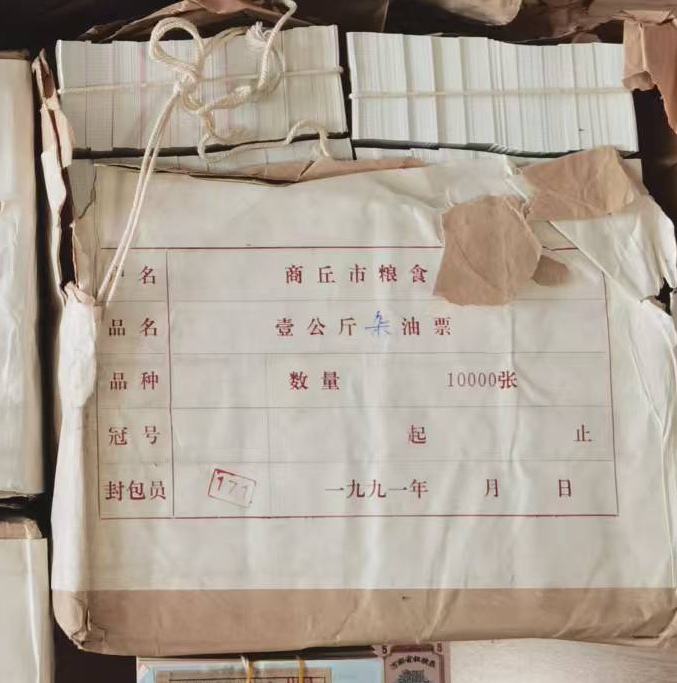 户名 商丘市粮食
品名 壹公斤杂油票
品种 数量 10000张
冠号 起 止
封包员 171 一九九一年 月 日
5 5
河南省粮